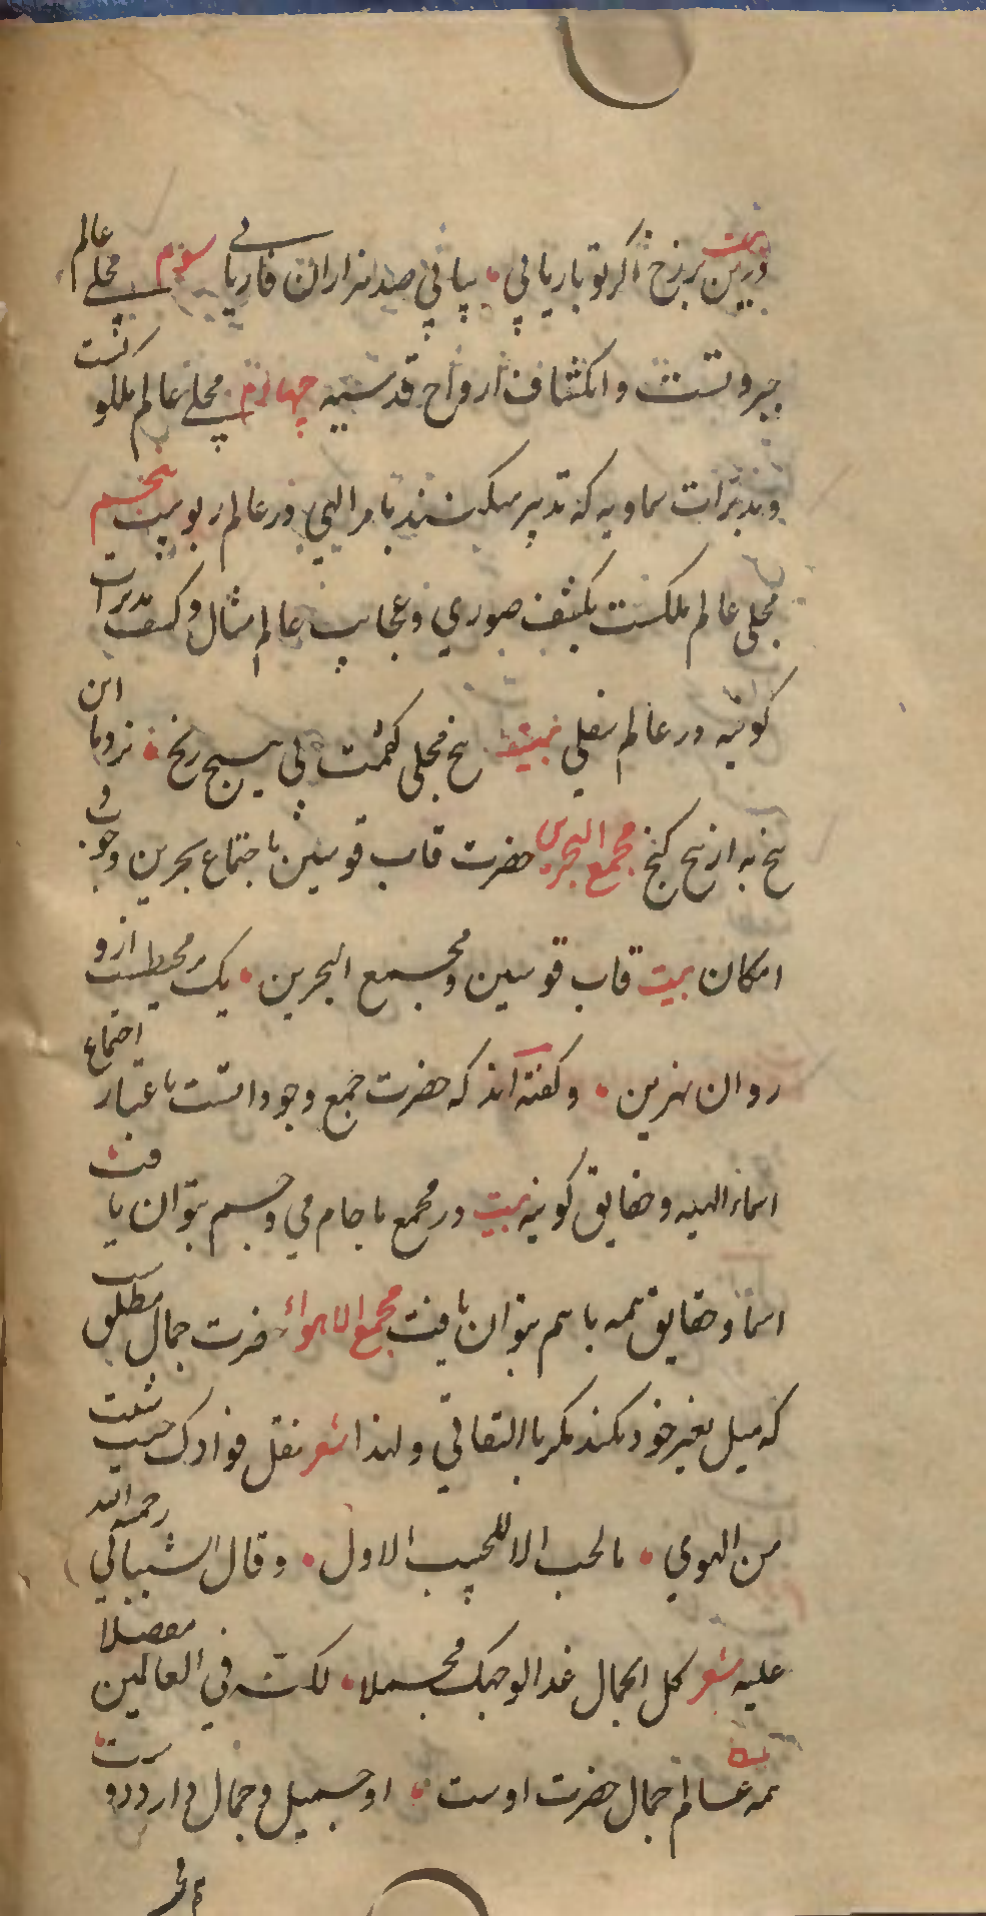 بیت درین برزخ اگر تو بار یابی • بیابی صد هزاران فاریابی سوم مجلی عالم
جبروتست وانکشاف ارواح قدسیه چهارم مجلی عالم ملکوتست
ومدبرات سماویه که تدبیر میکنند بامر الهی در عالم ربوبیت پنجم
مجلی عالم ملکست بکشف صوری وعجایب عالم مثال وکشف مدبرات
کونیه در عالم سفلی بیت پنج مجلی گفتمت بی هیچ رنج • نزد ما این
پنج به از پنج گنج مجمع البحرین حضرت قاب قوسین باجتماع بحرین وجوب و
امکان بیت قاب قوسین ومجمع البحرین • یک محیطیست ازو
روان نهرین • وگفته‌اند که حضرت جمع وجود است باعتبار اجتماع
اسماء الهیه وحقایق کونیه بیت در مجمع ما جام می وجسم بتوان یافت •
اسما وحقایق همه با هم بتوان یافت مجمع الاهواء حضرت جمال مطلق ست
که میل بغیر خود نکند مگر باالتفاتی ولهذا شعر نقل فوادک حیث شئت
من الهوی • مالحب الا للحبیب الاول • وقال الشیبانی رحمه الله
علیه شعر کل الجمال غدا لوجهک مجملا • لکنه فی العالمین مفصلا
همه عالم جمال حضرت اوست • او جمیل وجمال دارد دوست •